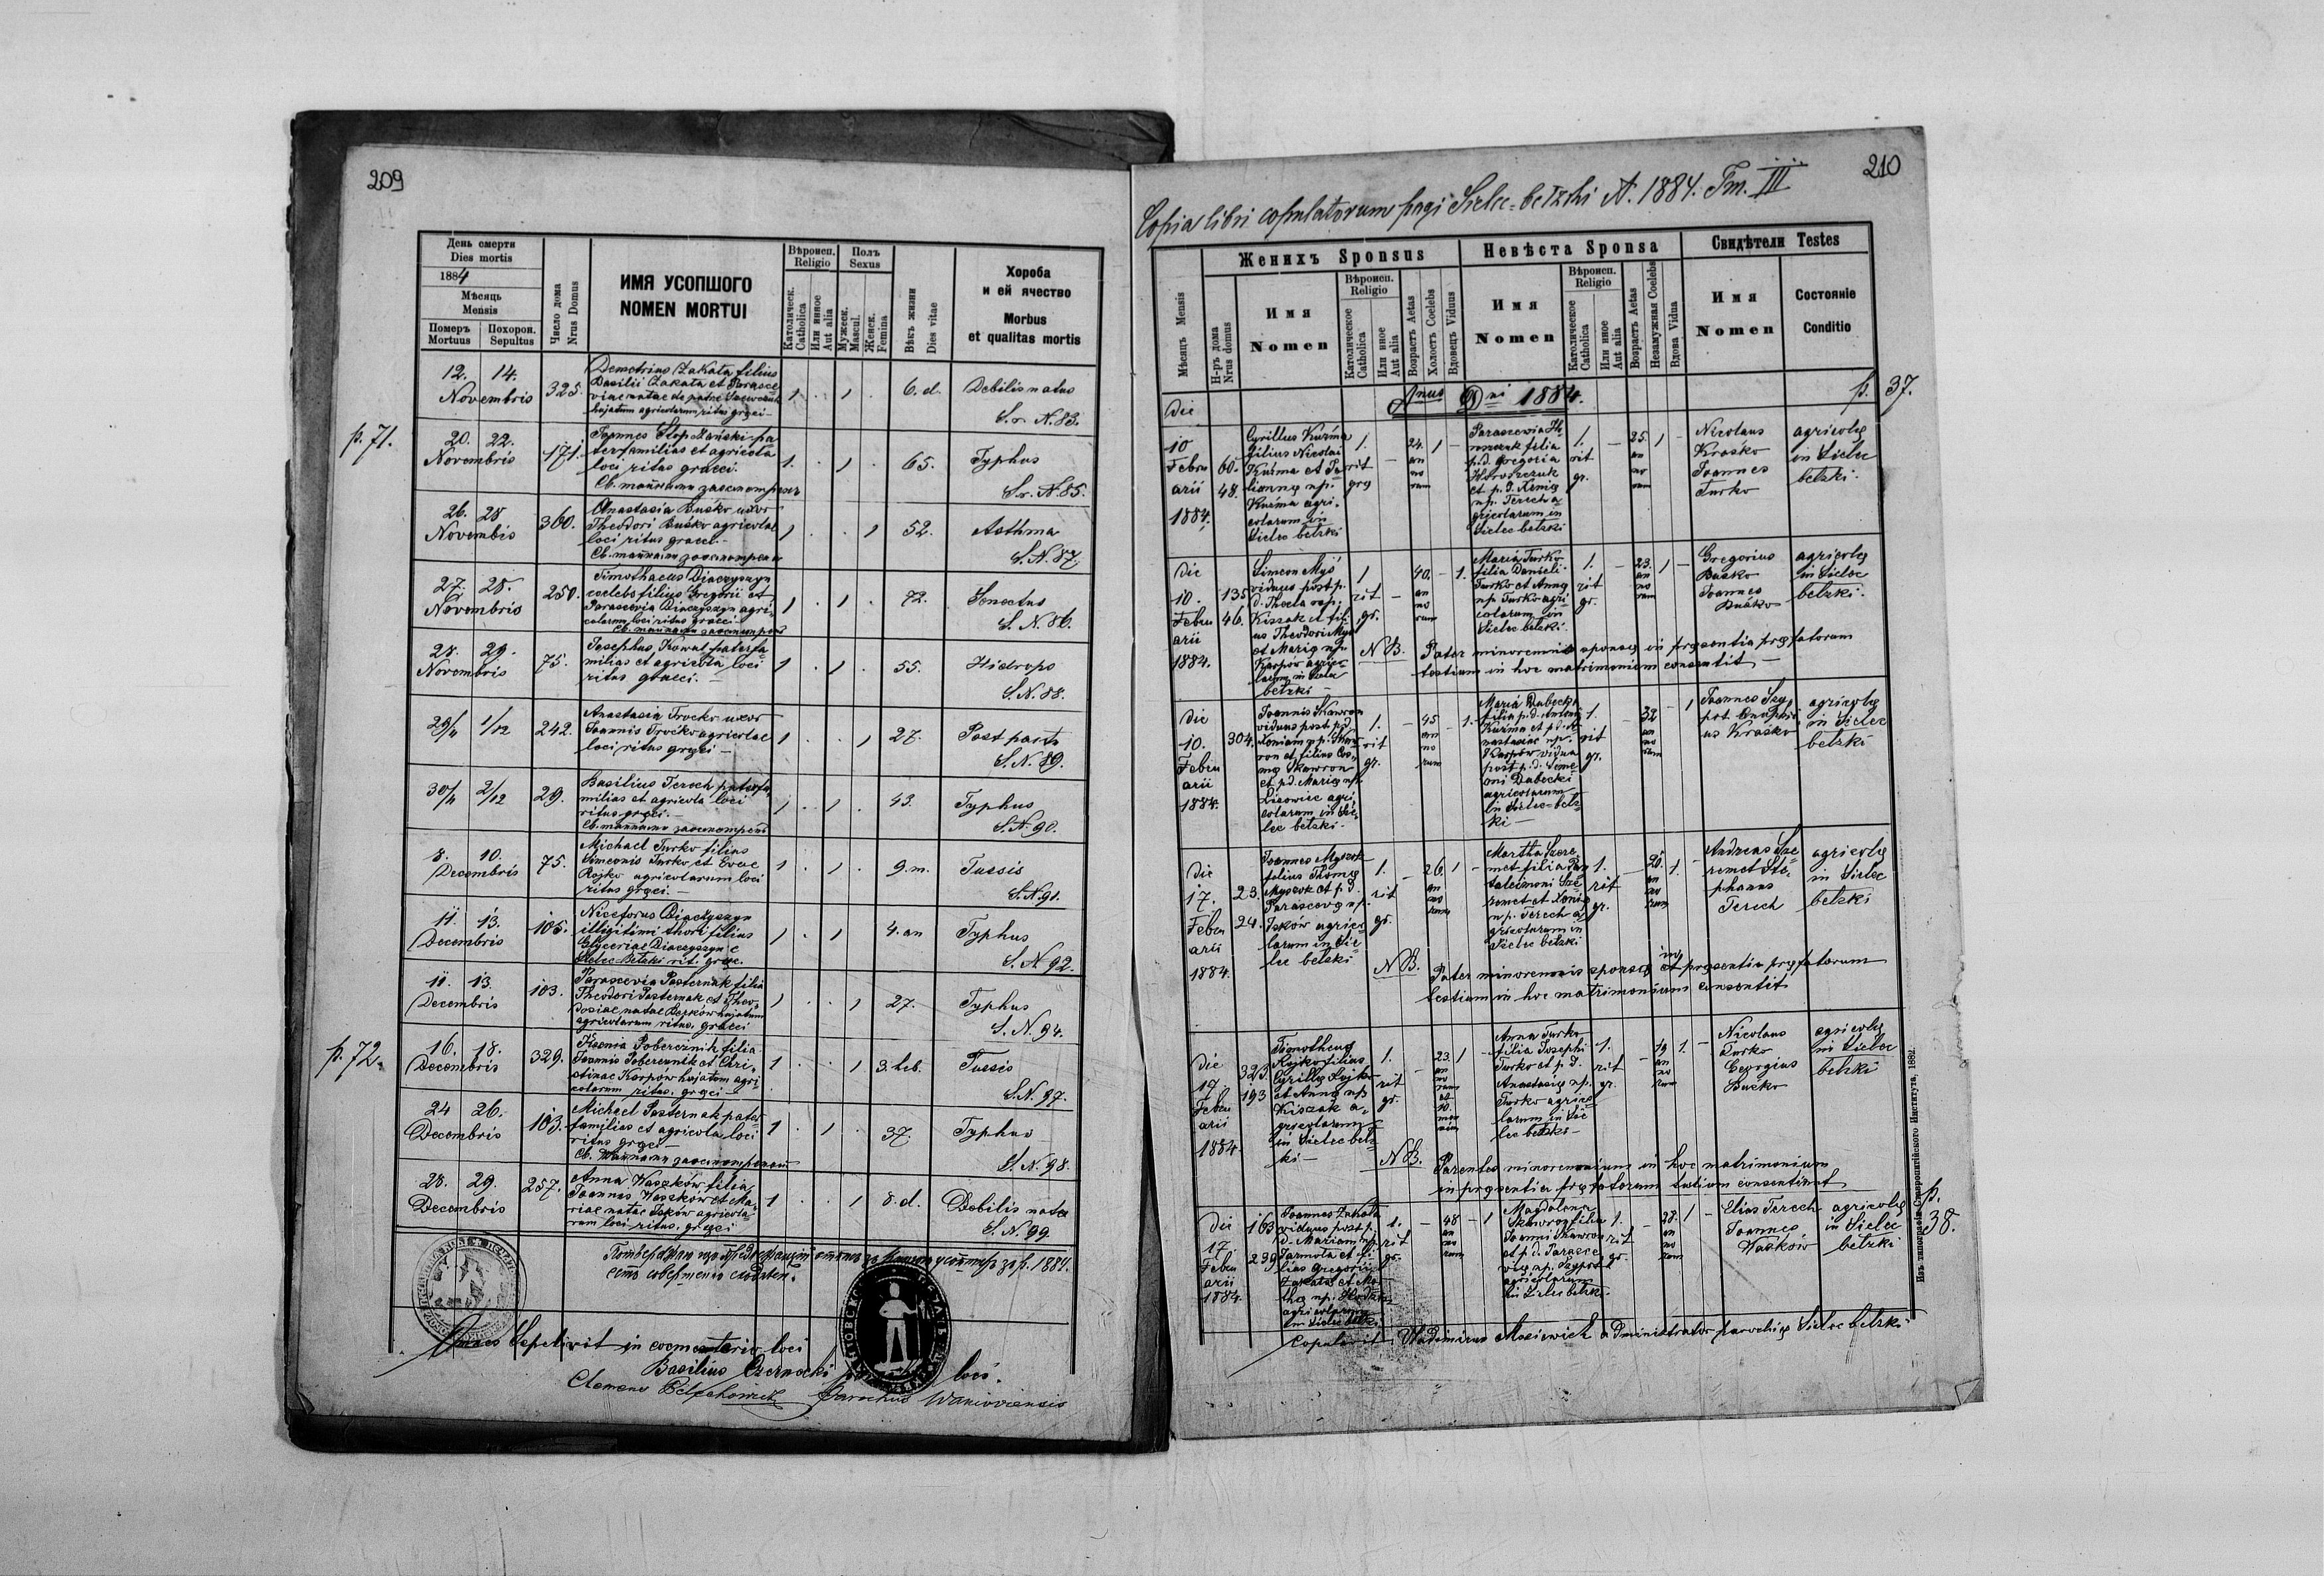 209
День смерти
Dies mortis
1884
Мѣсяць
Mensis
Померъ
Mortuus
Похорон.
Sepultus
Число дома
Nrus Domus
ИМЯ УСОПШОГО
NOMEN MORTUI
Вѣроисп.
Religio
Католическ.
Catholica
Или иное
Aut alia
Полъ
Sexus
Мужеск.
Mascul.
Женск.
Femina
Вѣкъ жизни
Dies vitae
Хороба
и ей ячество
Morbus
et qualitas mortis
12. 14.
Novembris
325.
Demetrius Zakata filius
Basilii Zakata et Parasce
viae natae de patre
hujatum agricolarum ritus graeci
1 . 1 .
6. d.
Debilis natus
S. N. 83.
p. 71.
20. 22.
Novembris
171.
Joannes pa
terfamilias et agricola
loci ritus graeci.
1. . 1 .
65.
Typhus
S. N. 85.
26. 28
Novembis
360.
Anastasia Buśko uxor
Theodori Buśko agricolae
loci ritus graeci.
1 . . 1
52.
Asthma
S. N. 87.
27. 28.
Novembris
250.
Timothaeus Diaczyszyn
coelebs filius Gregorii et
Parascevia Diaczyszyn agri
colarum loci ritus graeci
1 . 1 .
72.
Senectus
S. N. 86.
28. 29.
Novembris
75.
Josephus Kowal paterfa
milias et agricola loci
ritus graeci. —
1 . 1 .
55.
Hidrops
S. N. 88.
29/11 1/12
242.
Anastasia Trocko uxor
Joannis Trocko agricolae
loci ritus gręci —
1 . . 1
27.
Post partu
S. N. 89.
30/11 2/12
29.
Basilius Terech paterfa
milias et agricola loci
ritus gręci. —
1 . 1 .
43.
Typhus
S. N. 90.
8. 10.
Decembris
75.
Michael Turko filius
Simeonis Turko et Evae
Rojko agricolarum loci
ritus gręci. —
1 . 1 .
9. m.
Tussis
S. N. 91.
11. 13.
Decembris
105.
Niceforus Diaczyszyn
illigitimi thori filius
Glyceriae Diaczyszyn e
Sielec-Betzki rit. gręc.
1 . 1
4. an
Typhus
S. N. 92.
11. 13.
Decembris
103.
Parascevia Pasternak filia
Theodori Pasternak et Theo
dosiae natae hujatum
agricolarum ritus. graeci
1 . . 1
27.
Typhus
S. N. 94.
p. 72.
16. 18.
Decembris
329.
Ksenia Pobereznik filia
Joannis Pobereznik et Chri
stinae Karpów hujatum agri
colarum ritus. gręci —
1 . . 1
3. heb.
Tussis
S. N. 97.
24 26.
Decembris
103.
Michael Pasternak pater
familias et agricola loci
ritus gręci —
1 . 1 .
37.
Typhus
S. N. 98.
28. 29.
Decembris
257.
Anna Waszków filia
Joannes Waszków et Ma
riae natae Isków agricola
rum loci ritus. gręci
1 . . 1
8. d.
Debilis nata
S. N. 99.
Omnes Sepelivit in coemeterio loci
Basilius Czernecki loci.
Clemens Parochus Waniowiensis
210
Copia libri copulatorum pagi Sielec=betzki A. 1884. Tm. III
Женихъ Sponsus
Невѣста Sponsa
Свидѣтели Testes
Мѣсяць Mensis
Н-ръ дома
Nrus domus
Имя
Nomen
Вѣроисп.
Religio
Католическое
Catholica
Или иное
Aut alia
Возрастъ Aetas
Холостъ Coelebs
Вдовецъ Viduus
Имя
Nomen
Вѣроисп.
Religio
Католическое
Catholica
Или иное
Aut alia
Возрастъ Aetas
Незамужная Coelebs
Вдова Vidua
Имя
Nomen
Состояніе
Conditio
Anus Dni 1884.
p. 37.
Die
10
Febru
arii
1884.
60.
48.
Cyrillus Kuźma
filius Nicolai
Kuźma et Ju
liannę np.
Kuźma agri.
colarum in
Sielec betzki
1.
rit
grę
—
24.
an
no
rum
1 —
Parascevia Ho
roszczuk filia
p.d. Gregoria
Horoszczuk
et p. d. Xenię
np. Terech a
gricolarum in
Sielec betzki
1.
rit
gr.
—
25.
an
no
rum
1 —
Nicolaus
Krasko
Joannes
Turko
agricolę
in Sielec
betzki.
Die
10.
Febru
arii
1884.
135
46.
Simeon Myś
viduus post p.
d. Thecla np.
Kiszak et fili
us Theodori Myś
et Marię np
Karpów agrico
larum in Sielec
betzki —
1
rit
gr.
—
40.
an
no
rum
— 1.
Maria Turko
filia Danieli
Turko et Annę
np Turko agri
colarum in
Sielec betzki.
1.
rit
gr.
—
23.
an
no
rum
1 —
Gregorius
Buśko
Joannes
Buśko
agricolę
in Sielec
betzki.
N B. Pater minorennis sponsę in pręsentia pręfatorum
testium in hoc matrimonium consentit —
Die
10.
Febru
arii
1884.
304.
Joannis Skawron
viduus post p.d.
ron et filius Cos
mę Skawron
et p.d. Marię np.
Lisowiec agri.
colarum in Sie
lec betzki.
1.
rit
gr.
—
45
an
no
rum
— 1.
Maria Dubecka
filia p.d. Antoni
Kuźma et p.d. A
nastasiae np.
Karpów vidua
post p. d. Sime
oni Dubecki
agricolarum
in Sielec=betz
ki —
1.
rit
gr.
—
32
an
no
rum
— 1
Joannes Szy
pot. Onuphri
us Krasko
agricolę
in Sielec
betzki
Die
17.
Febru
arii
1884.
23.
24.
Joannes Myszok
filius Thomę
Myszok et p. d.
Parascevę np.
Isków agrico
larum in Sie
lec betzki
1.
rit
gr.
—
26.
an
no
rum
1 —
Martha Szere
met filia Pan
taleimoni Sze
remet et Xenię
np. Terech a
gricolarum in
Sielec betzki
1.
rit
gr.
—
20.
an
no
rum
1. —
Andreas Sze
remet Ste
phanus
Terech
agricolę
in Sielec
betzki
N B. Pater minorennis sponsę in pręsentia pręfatorum
testium in hoc matrimonium consentit
Die
17.
Febru
arii
1884.
323.
193
Timotheus
Rojko filius
Cyrillę Rojko
et Annę np
Kiszak a,
gricolarum
in Sielec betz
ki —
1.
rit
gr.
—
23.
an
no
rum
et
10.
men
sium
1 —
Anna Turko
filia Josephi
Turko et p. d.
Anastasię np.
Turko agrico
larum in Sie
lec betzki —
1.
rit
gr.
—
19
an
no
rum
1. —
Nicolaus
Turko
Georgius
Buśko
agricolę
in Sielec
betzki
N B. Parentes minorennium in hoc matrimonium
in pręsentia pręfatorum testium consentiunt
p.
38.
Die
17.
Febru
arii
1884.
163
239
Joannes Zakata
viduus post p.
d. Mariam np
Jarmota et fi
lius Gregorii
Zakata et Ma
agricolarum
in Sielec betzki
1.
rit
gr.
—
48
an
no
rum
— 1
Magdalena
Skawron filia
Joanni Skawron
et p d. Parasce
vię np. Szypot
agricolarum
in Sielec betzki.
1.
rit
gr.
—
28.
an
no
rum
1 —
Elias Terech
Joannes
Waśków
agricolę
in Sielec
betzki
Copulavit Vladimirus Mosiewicz administrator parochię Sielec betzki
Изъ типографіи Ставропигійского Института, 1882.